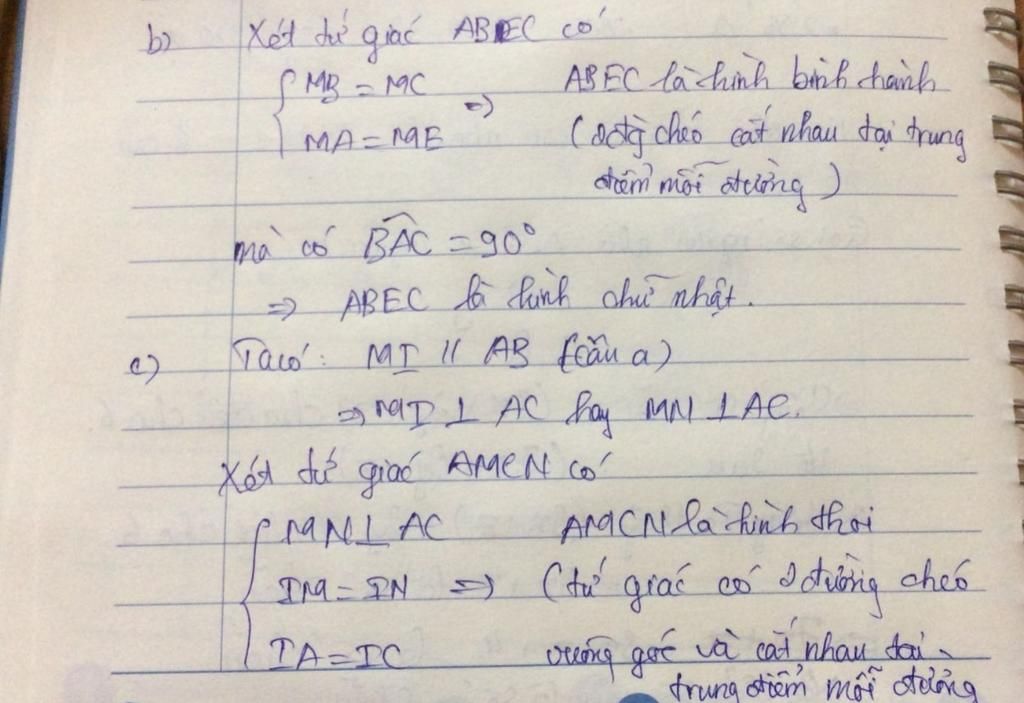 b) Xét tứ giác ABEC có
MB = MC => ABEC là hình bình hành
MA = ME (2 đg chéo cắt nhau tại trung
điểm mỗi đường)
mà có BAC = 90°
=> ABEC là hình chữ nhật.
c) Ta có: MI // AB (câu a)
=> MI ⊥ AC hay MN ⊥ AC.
Xét tứ giác AMCN có
MN ⊥ AC AMCN là hình thoi
IM = IN => (tứ giác có 2 đường chéo
IA = IC vuông góc và cắt nhau tại
trung điểm mỗi đường